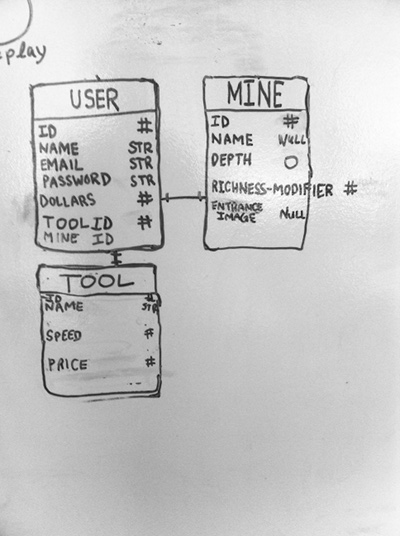 play
USER
ID #
NAME STR
EMAIL STR
PASSWORD STR
DOLLARS #
TOOL ID #
MINE ID
MINE
ID #
NAME NULL
DEPTH 0
RICHNESS-MODIFIER #
ENTRANCE
IMAGE NULL
TOOL
ID #
NAME STR
SPEED #
PRICE #